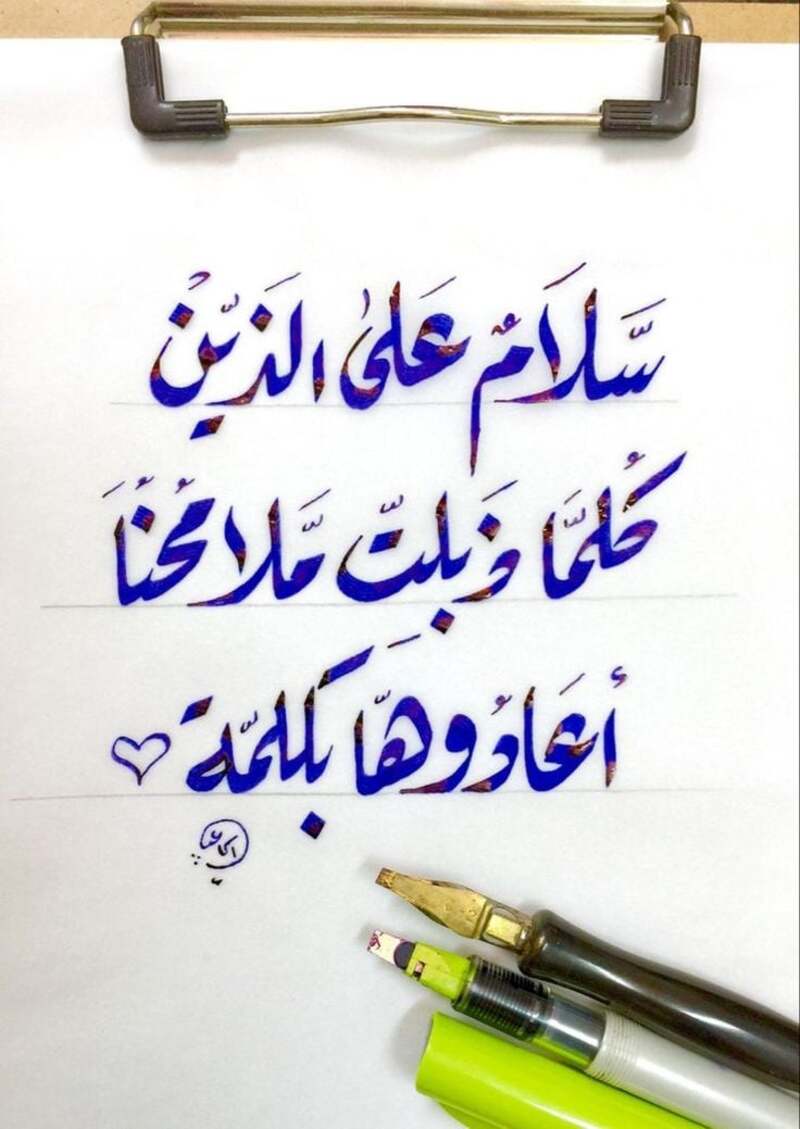 سَّلَامٌ عَلىٰ الذَيّنْ
كُلمَّا ذَبلتّ مَّلامحُنَا
أعَادُوهَّا بَكلمّة